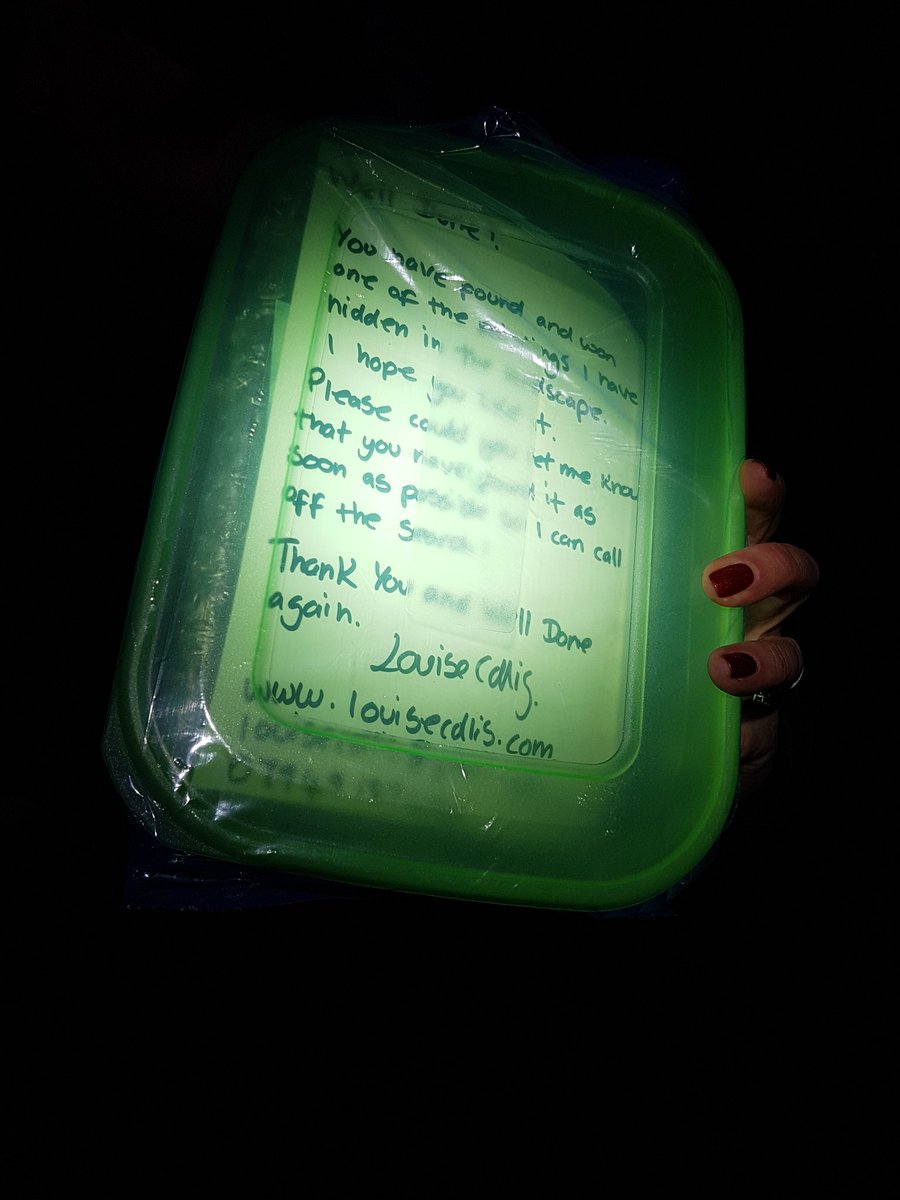 Well Done!
You have found and won
one of the paintings I have
hidden in the landscape.
I hope you like it.
Please could you let me know
that you have found it as
soon as possible so I can call
off the search.
Thank You and Well Done
again.
Louise Collis.
www.louisecollis.com